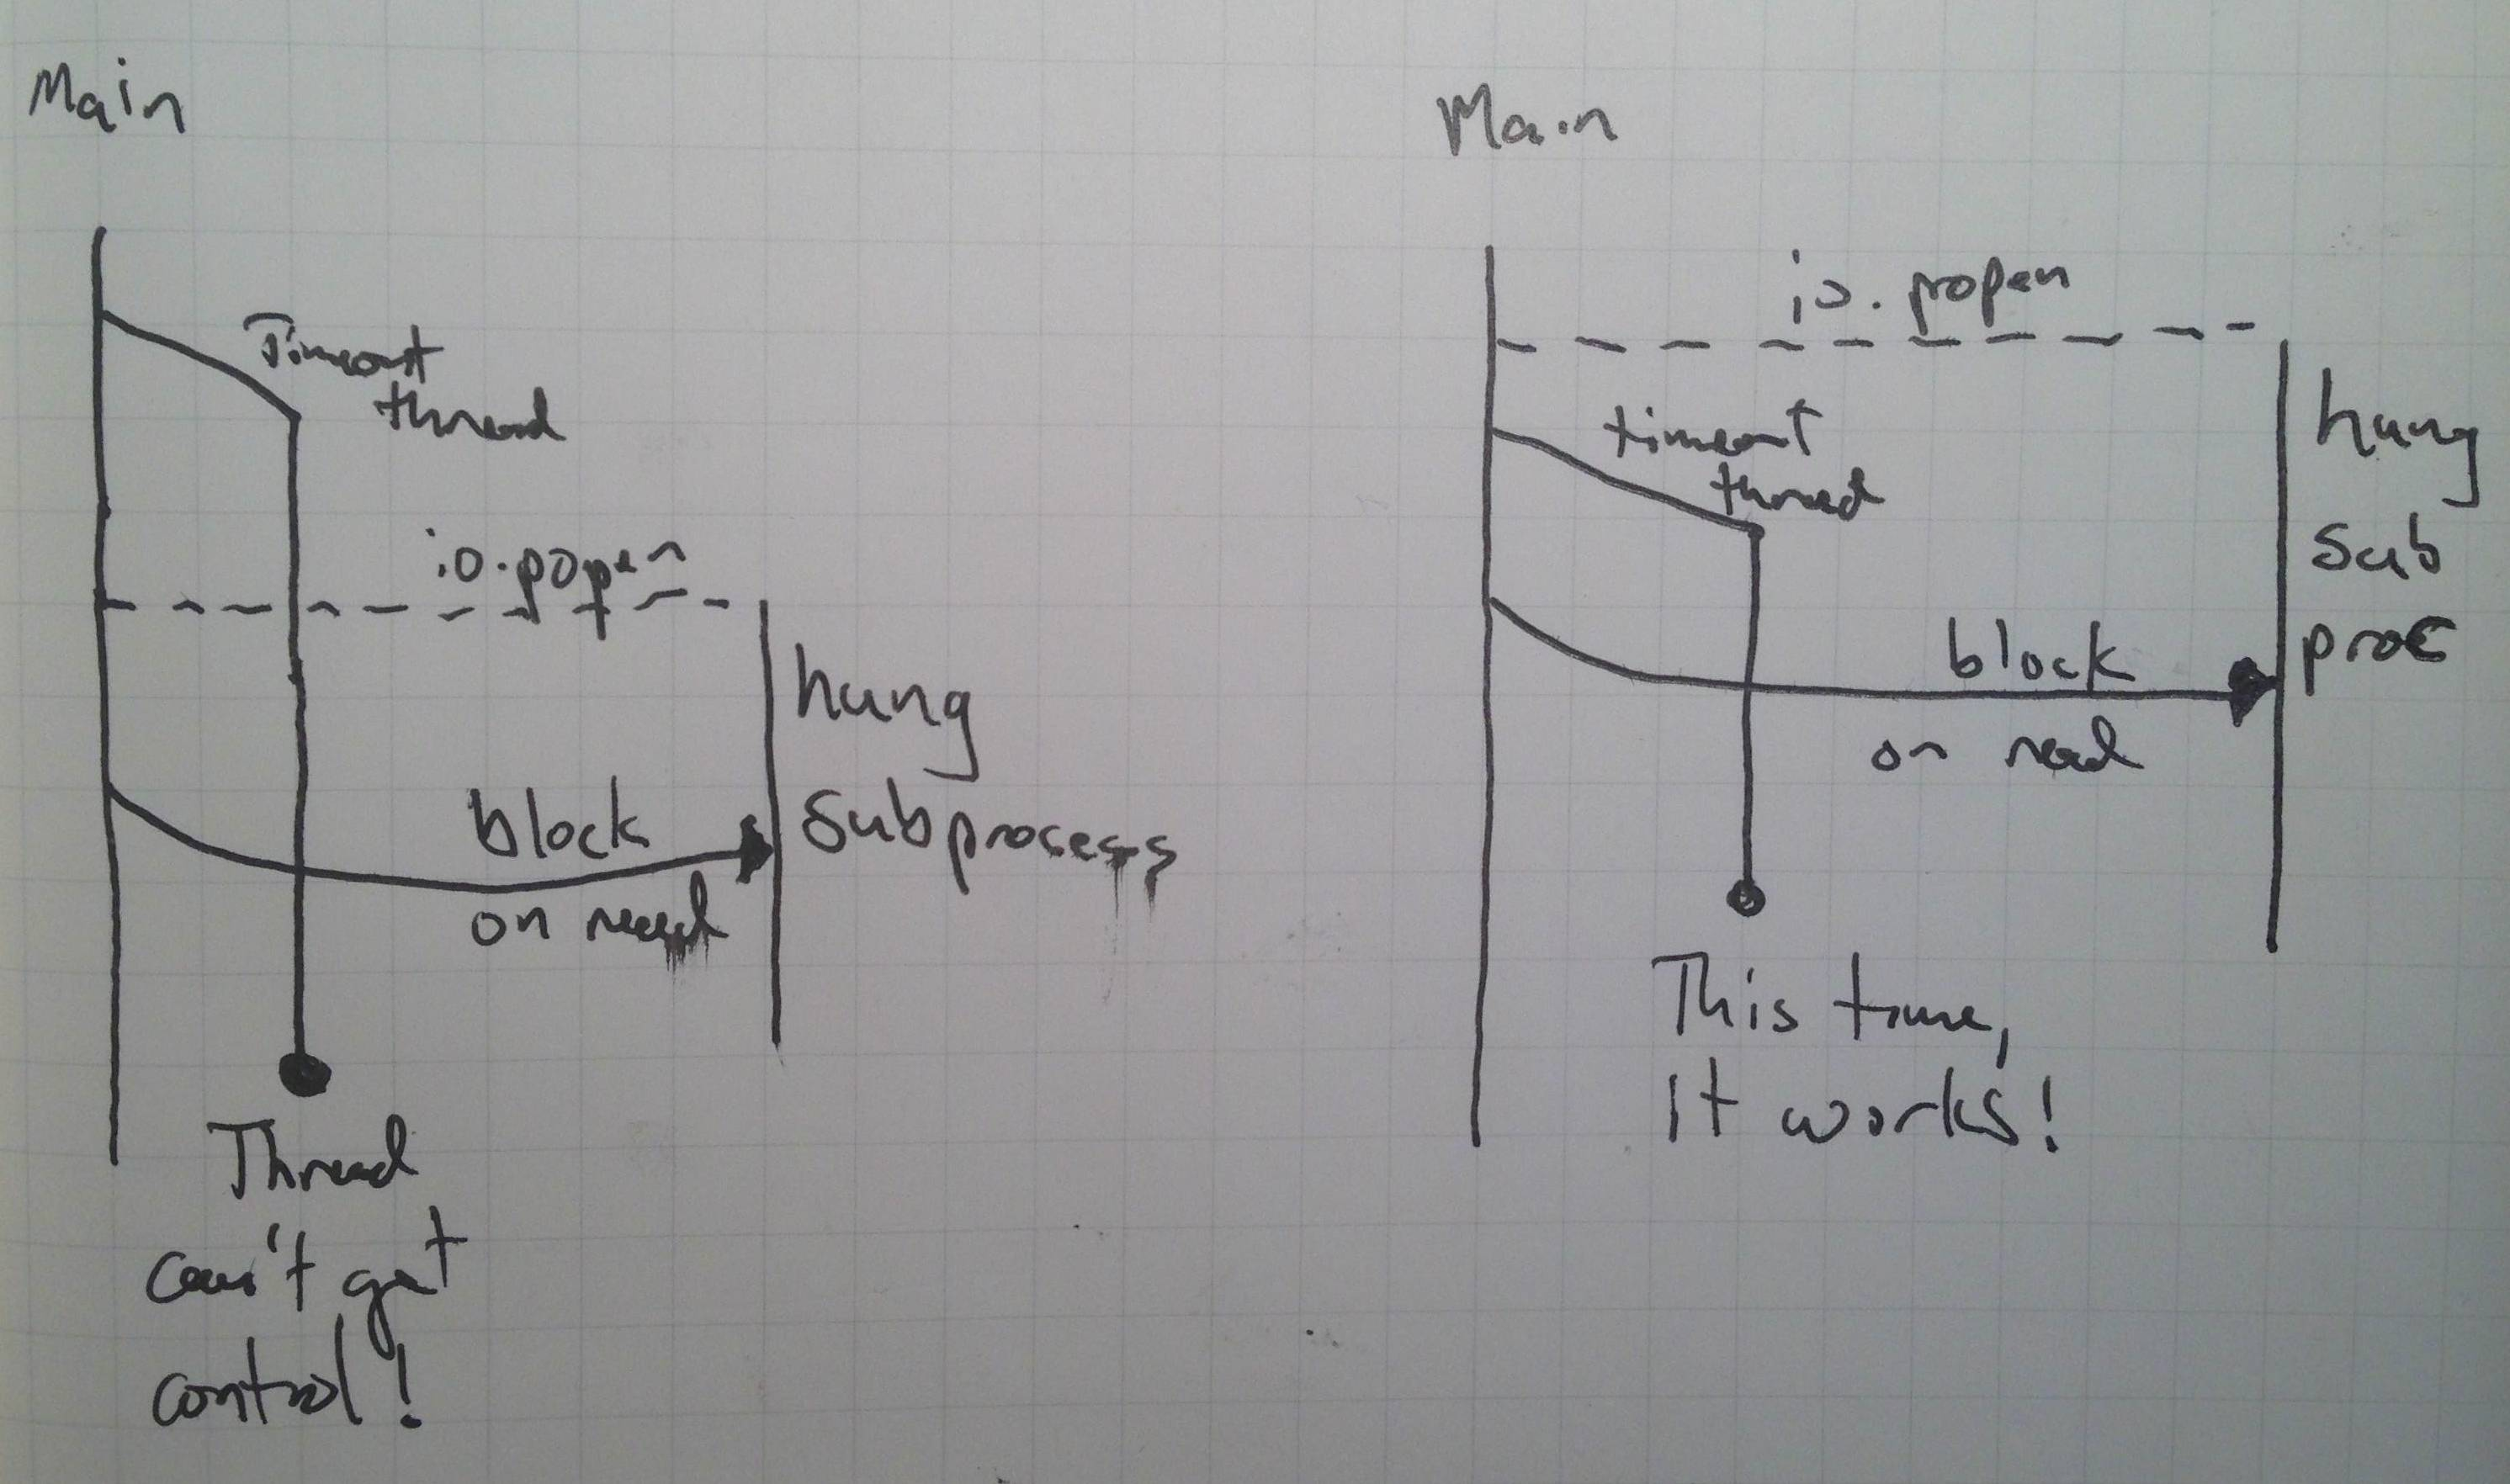 Main
Timeout
thread
io.popen
hung
subprocess
block
on read
Thread
can't get
control!
Main
io.propen
timeout
thread
hung
sub
proc
block
on read
This time,
It works!